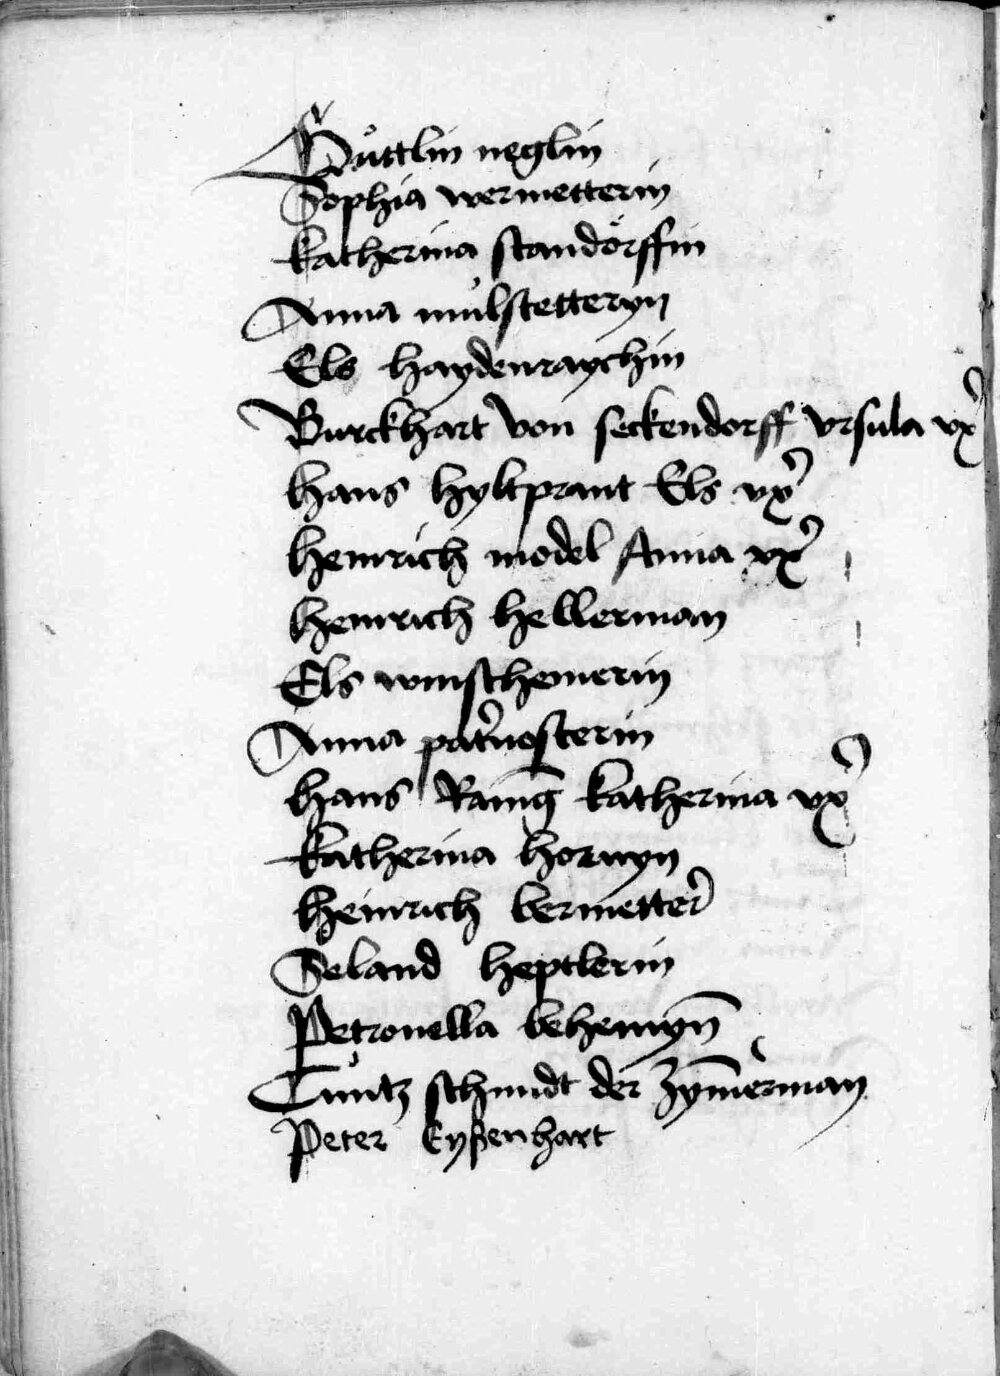 Guͦttlin neglin
Sophia wermetterin
Katherina standörffin
Anna mulstetteryn
Els haydenraychin
Burckhart von seckendorff vrsula vx̄
Hans hyltprant Els vx̄
Heinrich model Anna vx̄
Heinrich Hellerman
Els winschemerin
Anna pat'nosterin
Hans Raing̅ Katherina vx̄
Katherina horwyn
Heinrich bermetter
Seland heptlerin
Petronella behemyn̄
Cuntz schmidt der zym̄erman
Peter Eyßenhart